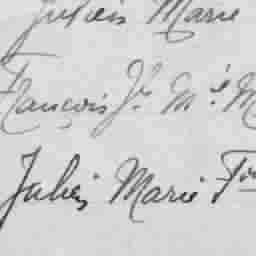 Julien Marie
François Jh Mie M
Julien Marie Fois